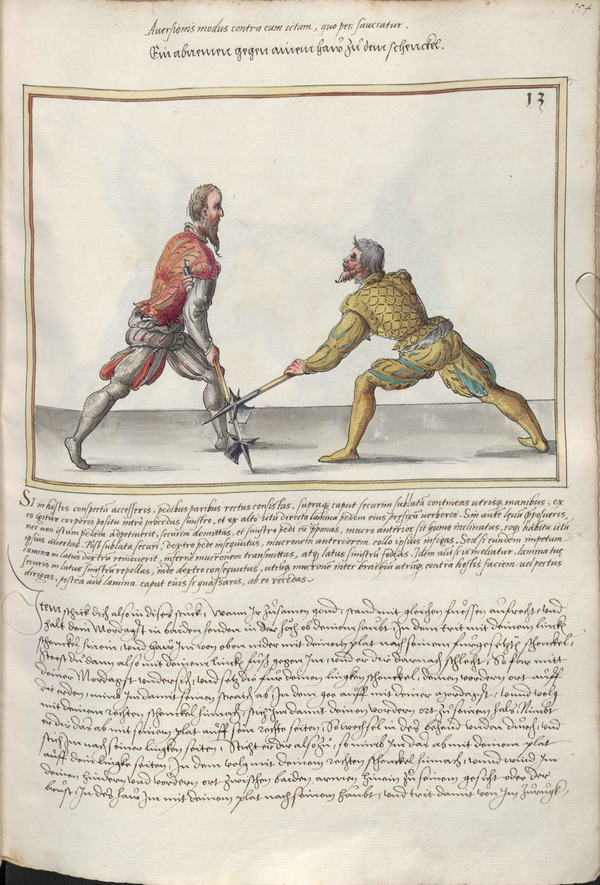 154
Aversionis modus contra eum ictum, quo pes sauciatur.
Ein abnemen gegen ainem haw zu dem schenckel.
13
SI in hostis conspectum accesseris, pedibus paribus rectus consistas, supraq; caput securim sublatam contineas utrisq; manibus, ex
eo igitur corporis positu intro procedas sinistro, et ex alto ictu directo lamina pedem eius prefixum verberes. Sin aute sequi opposueris,
nec non istum pedem adpetiverit, securim demittas, et sinistro pedi eu opponas, mucro anterior sit humo inclinatus, eoq; habitu ictu
ipsius avertas. Post sublata securi, dextro pede insequutus, mucronem anteriorem collo ipsius infigas. Sed si eundem impetum
lamina in latus dextru removerit, inferne mucronem transmittas, atq; latus sinistru fodias. Idem si is moliatur, lamina tue
securis in latus sinistru repellas, inde dextro consequutus, utruq; mucrone inter brachia utruq; contra hostis faciem vel pectus
dirigas, postea aut lamina caput eius si quassaris, ab eo recedas.
Item schick dich also in dises stuck, wann Ir zusamen gond, stand mit gleichen fuessen aufrecht, und
halt dein Mordagst in baiden henden in der höch ob deinem haubt. In dem trit mit deinem lincken
schenckel hinein, und haw Im von oben nider mit deinem plat nach seinem furgesetzten schenckel,
Steest du dann also mit deinem lincken fuß gegen Im, und er dir darnach schlecht, So far mit
deiner Mordagst undersich, und setz die fur deinen lingken schenckel, deinen vordern ort auff
die erden, nimb Im damit seinen straich ab. In dem gee auff mit deiner mordagst, unnd volg
mit deinem rechten schenckel hinnach, stich Im damit deinen vordern ort zu seinem hals. Nimbt
er dir das ab mit seinem plat auff sein rechte seiten, So wechsel indes behend unden durch, und
stich Im nach seiner lingken seiten, Sticht er dir also zu, so nimb Im das ab mit deinem plat
auff dein lingke seiten, In dem volg mit deinem rechten schenckel hinnach, unnd wind Im
deinen hindern und vordern ort zwischen baiden armen hinein zu seinem gesicht oder der
brust, In des haw Im mit deinem plat nach seinem haubt, und trit damit von Im zurugk.